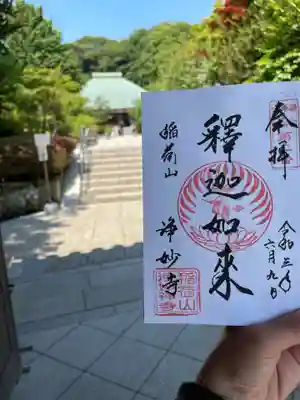 奉拝
令和三年
六月九日
釋迦如来
稲荷山
浄妙寺